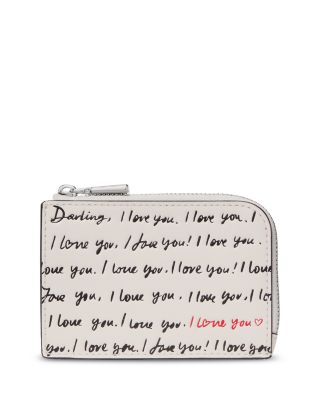 Darling, I love you. I love you. I
I love you. I love you! I love you.
love you. I love you. I love you! I love you.
love you, I love you. I love you. I
I love you. I love you. I love you♡
you. I love you. I love you! I love you.